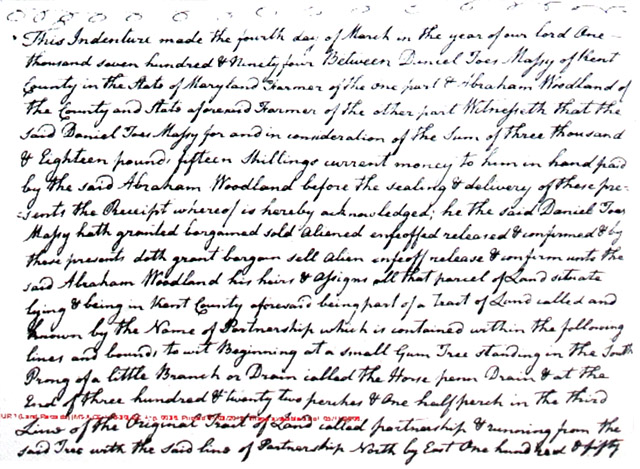 This Indenture made the fourth day of March in the year of our lord One
thousand seven hundred & Ninety four Between Daniel Toes Massy of Kent
County in the State of Maryland Farmer of the one part & Abraham Woodland of
the County and State aforesaid Farmer of the other part Witnesseth that the
said Daniel Toes Massy for and in consideration of the Sum of three thousand
& Eighteen pounds fifteen Shillings current money to him in hand paid
by the said Abraham Woodland before the sealing & delivery of these pre-
=sents the Receipt whereof is hereby acknowledged; he the said Daniel Toes
Massy hath granted bargained sold aliened enfeoffed released & confirmed & by
these presents doth grant bargain sell alien enfeoff release & confirm unto the
said Abraham Woodland his heirs & assigns all that parcel of Land situate
lying & being in Kent County aforesaid being part of a Tract of Land called and
known by the Name of Partnership which is contained within the following
lines and bounds to wit Beginning at a small Gum Tree standing in the South
Prong of a little Branch or Drain called the Horse penn Drain & at the
End of three hundred & twenty two perches & One half perch in the third
Line of the Original Tract of Land called partnership & running from the
said Tree with the said line of Partnership North by East One hundred & fifty